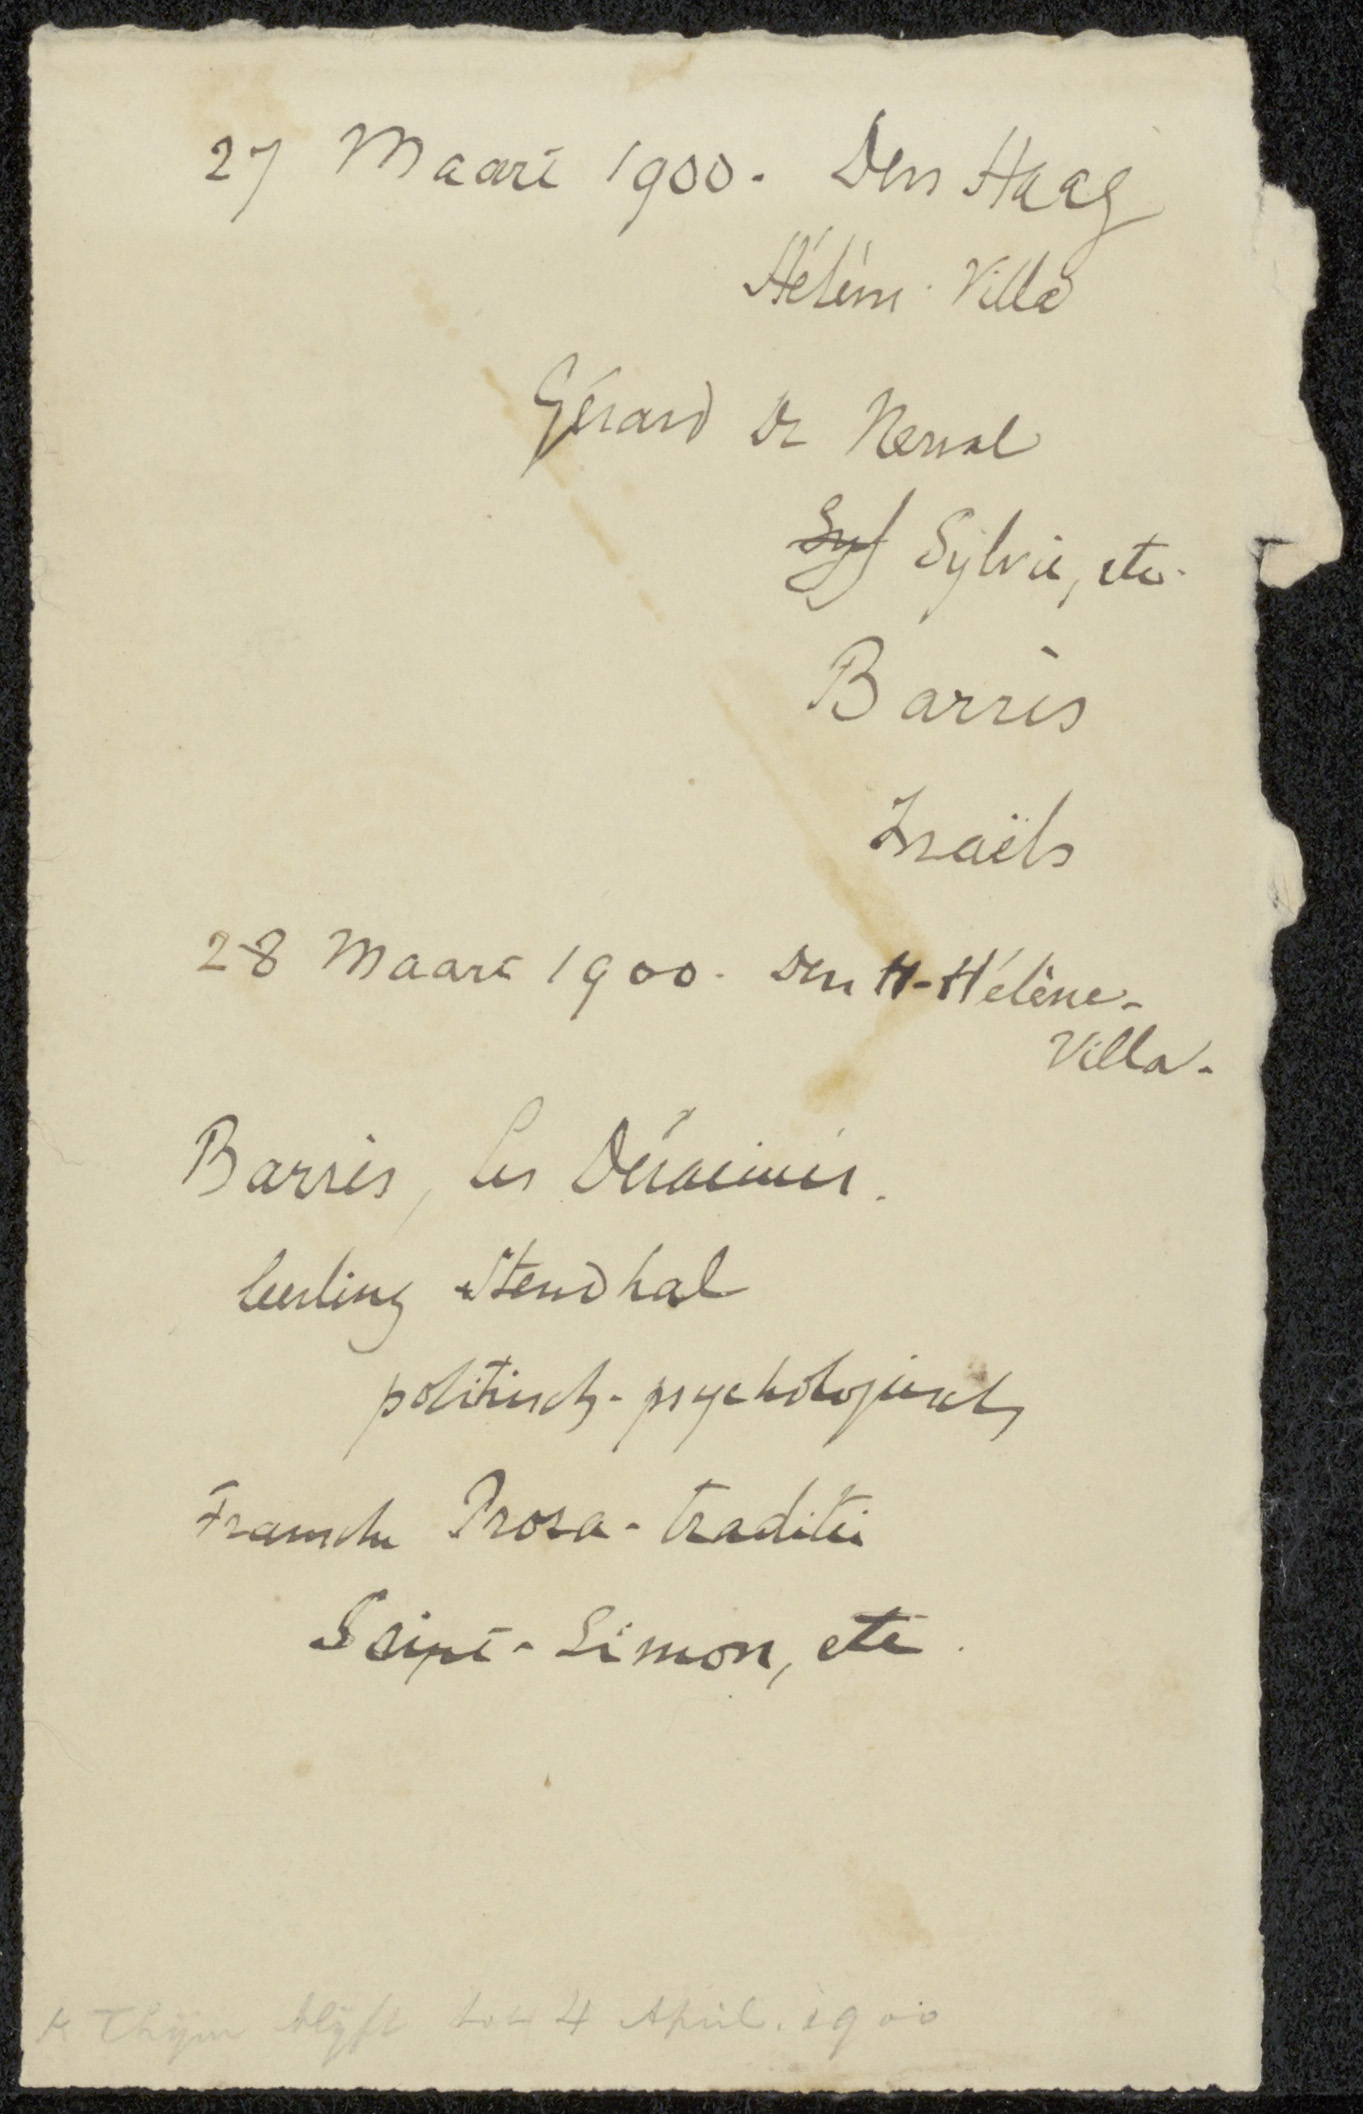 27 Maart 1900. Den Haag
Hélène Villa
Gérard de Nerval
Syl Sylvie, etc.
Barrès
Israëls
28 Maart 1900. Den H. Hélène-
Villa.
Barrès, Les Déracinés.
leerling Stendhal
politisch-psychologisch
Fransche Proza-traditie
Saint-Simon, etc.
Thijm blijft tot 4 April. 1900